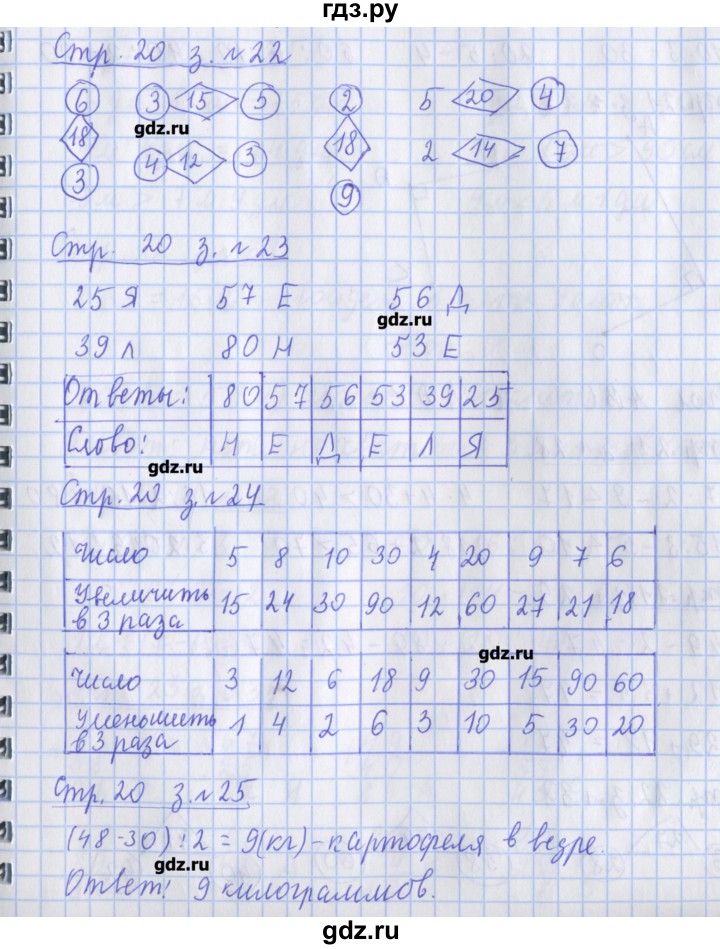 гдз.ру
Стр. 20 з. №22
6 3 15 5 2 5 20 4
18 gdz.ru 18
4 12 3 2 14 7
3 9
Стр. 20 з. №23
25 Я 57 Е 56 Д
gdz.ru
39 Л 80 Н 53 Е
Ответы: 80 57 56 53 39 25
Слово: Н Е Д Е Л Я
gdz.ru
Стр. 20 з. №24
Число 5 8 10 30 4 20 9 7 6
Увеличить в 3 раза 15 24 30 90 12 60 27 21 18
gdz.ru
Число 3 12 6 18 9 30 15 90 60
Уменьшить в 3 раза 1 4 2 6 3 10 5 30 20
Стр. 20 з. №25
(48-30):2=9(кг)-картофеля в ведре.
gdz.ru
Ответ: 9 килограммов.